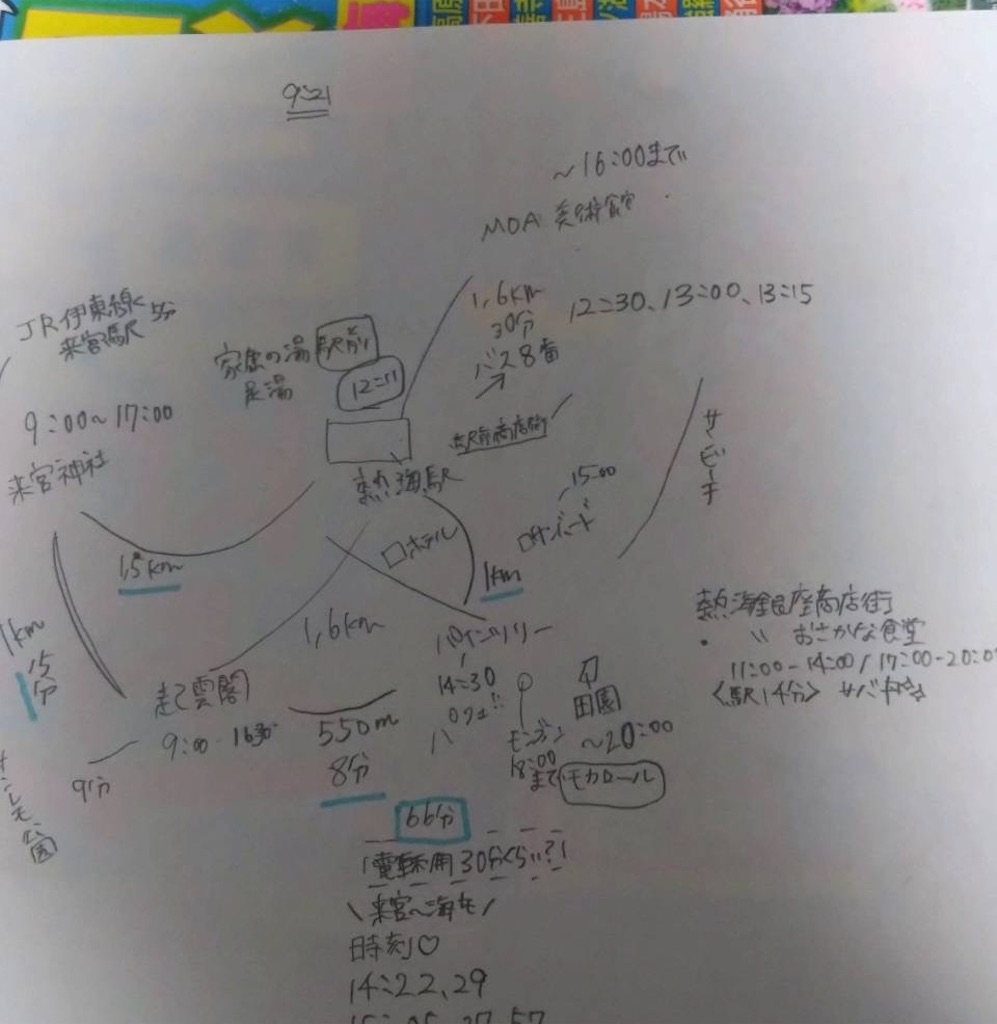 9:21
~16:00まで
MOA 美術館
1,6km
30分
バス8番
12:30、13:00、13:15
JR伊東線
来宮駅
5分
家族の湯
駅前
12:11
9:00~17:00
来宮神社
駅前商店街
熱海駅
サンビーチ
15:00
サンバード
ホテル
1,5km
1km
1,6km
1km
15分
起雲閣
9:00-16:30
550m
8分
9分
14:30
モンブラン
18:00
まで
田園
~20:00
モカロール
熱海銀座商店街
・ 〃 おさかな食堂
11:00-14:00/17:00-20:0
〈駅14分〉
66分
30分くらい?
来宮~
時刻♡
14:22、29